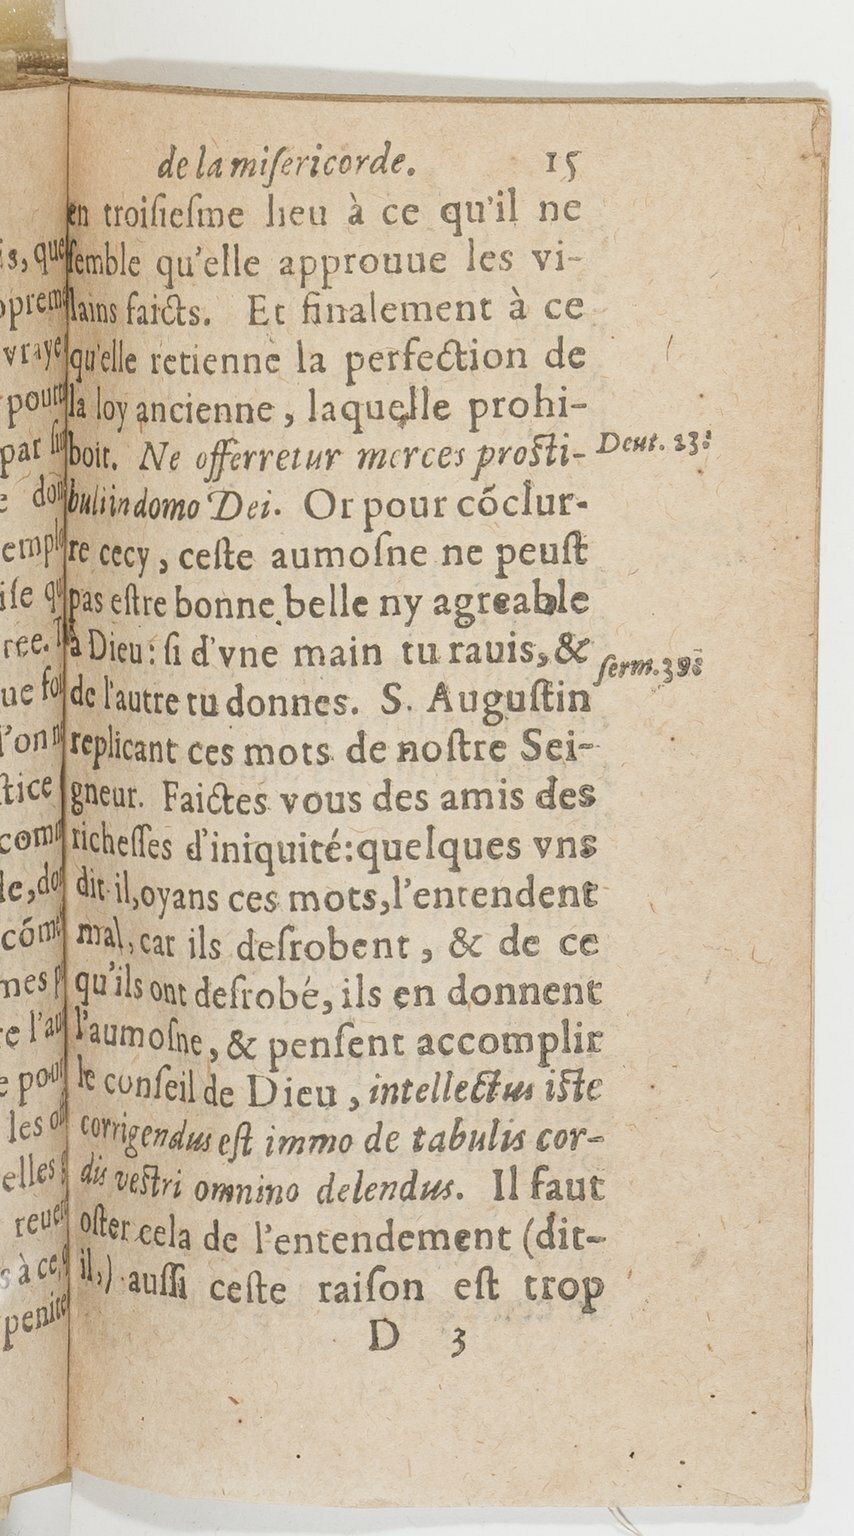 de la miſericorde. 15
en troiſieſme lieu à ce qu'il ne
ſemble qu'elle approuue les vi-
lains faicts. Et finalement à ce
qu'elle retienne la perfection de
la loy ancienne, laquelle prohi-
boit. Ne offerretur merces proſti-
Deut. 23:
buli in domo Dei. Or pour cõclur-
re cecy, ceſte aumoſne ne peuſt
pas eſtre bonne belle ny agreable
à Dieu: ſi d'vne main tu rauis, &
ſerm. 39:
de l'autre tu donnes. S. Auguſtin
replicant ces mots de noſtre Sei-
gneur. Faictes vous des amis des
richeſſes d'iniquité: quelques vns
dit-il, oyans ces mots, l'entendent
mal, car ils deſrobent, & de ce
qu'ils ont deſrobé, ils en donnent
l'aumoſne, & penſent accomplir
le conſeil de Dieu, intellectus iſte
corrigendus eſt immo de tabulis cor-
dis veſtri omnino delendus. Il faut
oſter cela de l'entendement (dit-
il,) auſſi ceſte raiſon eſt trop
D 3